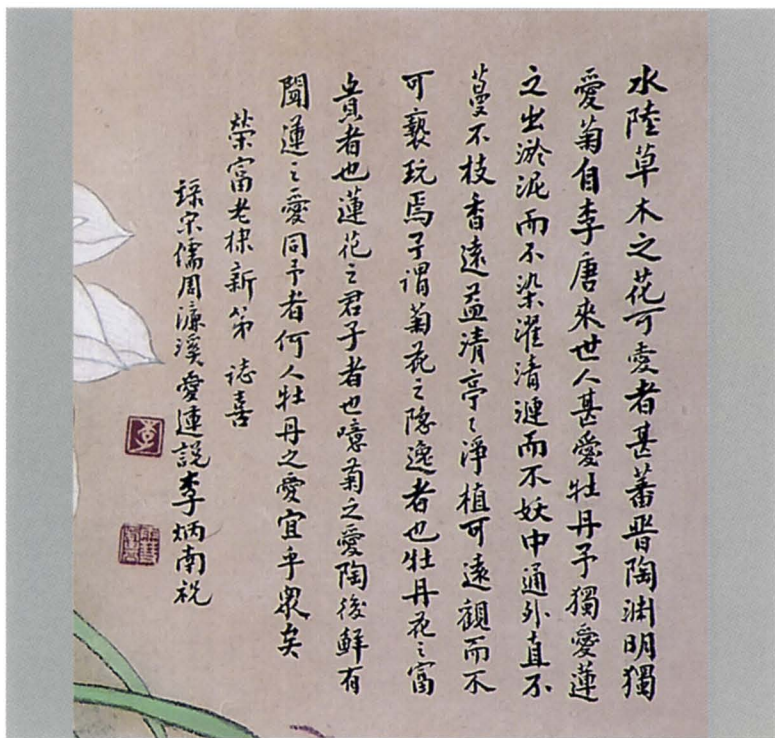 水陸草木之花可愛者甚蕃晉陶渊明獨
愛菊自李唐來世人甚愛牡丹予獨愛蓮
之出淤泥而不染濯清漣而不妖中通外直不
蔓不枝香遠益清亭〻淨植可遠觀而不
可褻玩焉予謂菊花之隐逸者也牡丹花之富
貴者也蓮花之君子者也噫菊之愛陶後鮮有
聞蓮之愛同予者何人牡丹之愛宜乎眾矣
榮富老棣新第 誌喜
録宋儒周濂溪愛蓮説李炳南祝